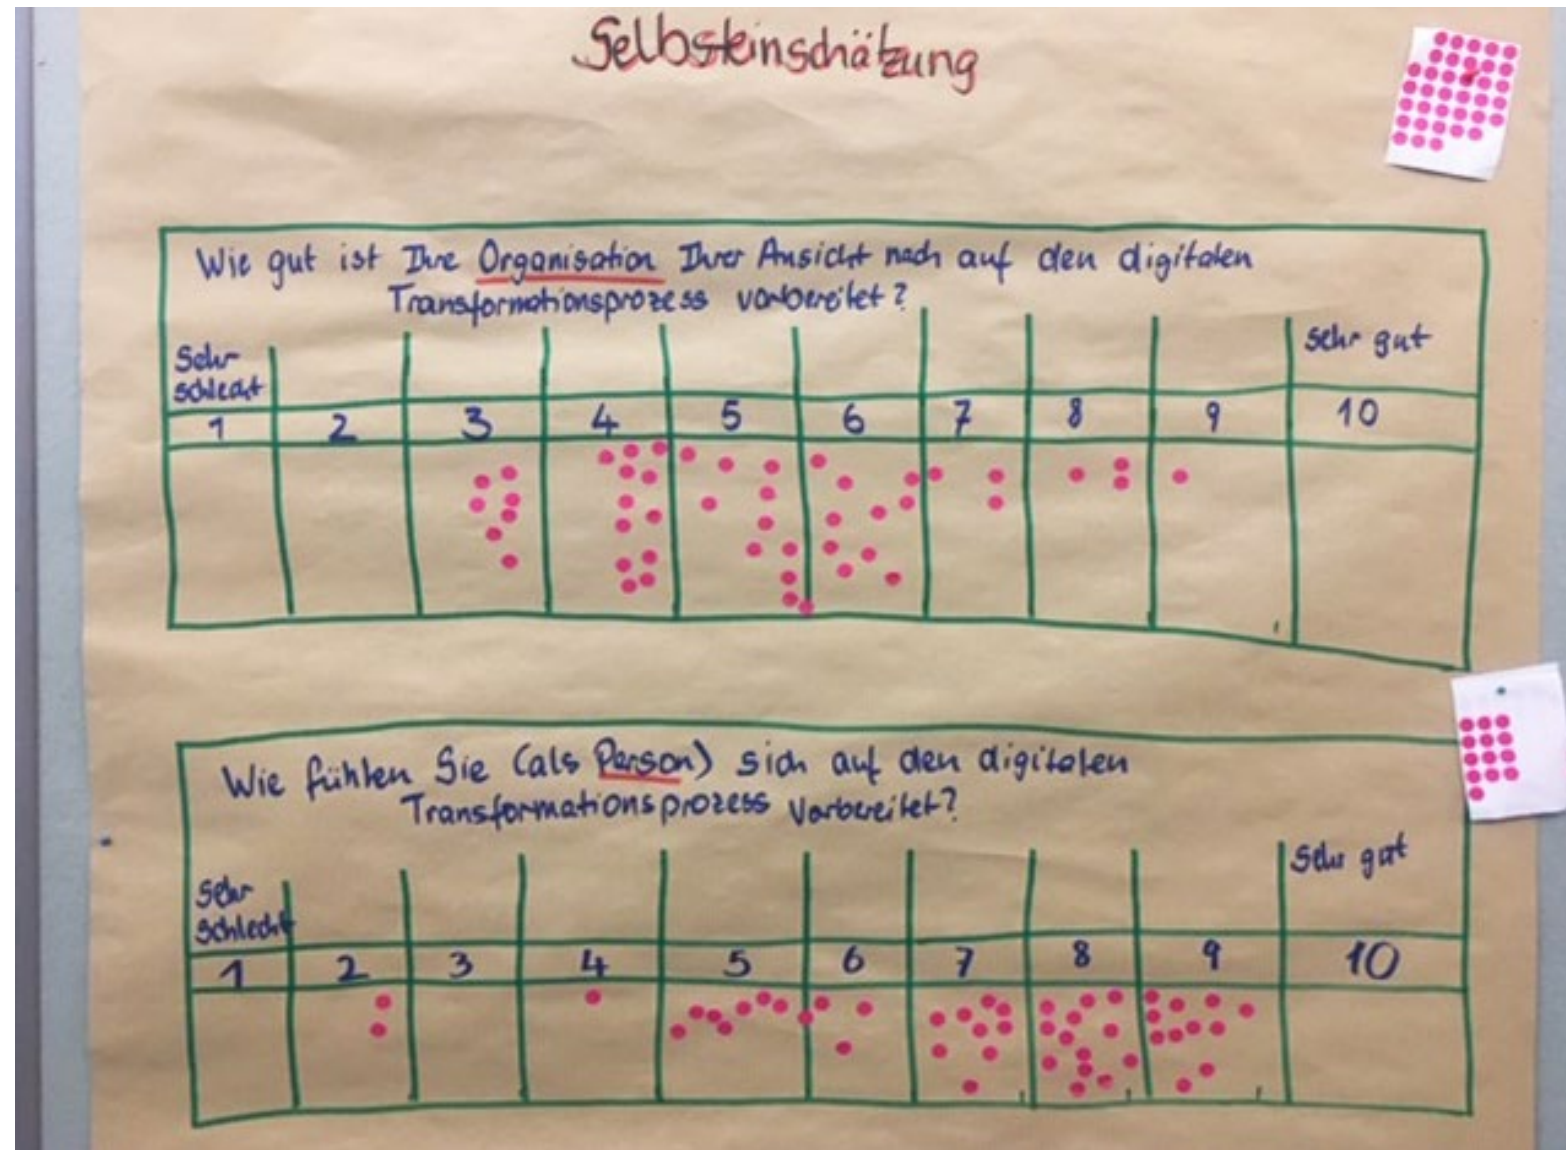 Selbsteinschätzung
Wie gut ist Ihre Organisation Ihrer Ansicht nach auf den digitalen
Transformationsprozess vorbereitet?
Sehr
schlecht
sehr gut
1 2 3 4 5 6 7 8 9 10
Wie fühlen Sie (als Person) sich auf den digitalen
Transformationsprozess vorbereitet?
Sehr
schlecht
Sehr gut
1 2 3 4 5 6 7 8 9 10